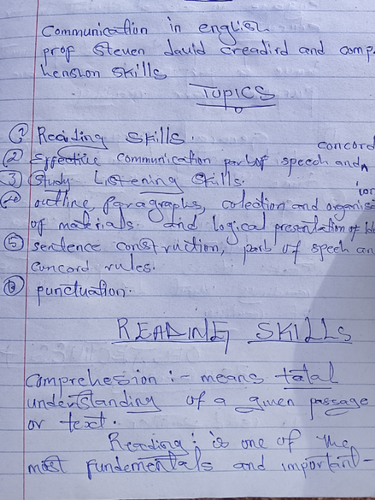 Communication in english
prof Steven david creadird and comp
hension skills
TOPICS
① Reading skills.
concord
② Effective communication part of speech and
③ Study Listening skills.
④ outline paragraphs, colection and organis
of materials. and logical presentation of Ide
⑤ sentence construction, part of speech an
concord rules.
⑥ punctuation.
READING SKILLS
Comprehesion :- means total
understanding of a given passage
or text.
Reading : is one of the
most fundementals and important-